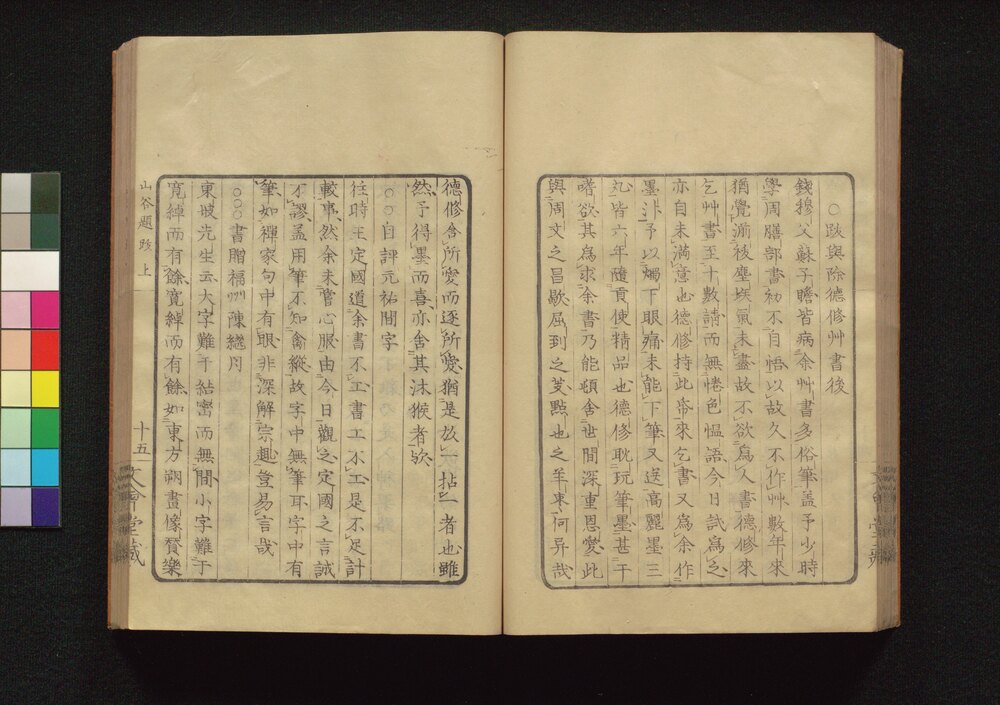 ○跋與陈德修艸書後
錢穆父蘇子瞻皆病余艸書多俗筆蓋予少時
學周膳部書初不自悟以故久不作艸數年來
猶覺湔祓塵埃氣未盡故不欲爲人書德修來
乞艸書至十數請而無惓色愠語今日試爲之
亦自未滿意也德修持此帋來乞書又爲余作
墨汁予以燭下眼痛未能下筆又送高麗墨三
丸皆六年隨貢使精品也德修耽玩筆墨甚于
嗜欲其爲求余書乃能頓舍世間深重恩愛此
與周文之昌歜屈到之芰點也之羊枣何异哉
德修舍所愛而逐所愛猶是放一拈一者也雖
然予得墨而喜亦舍其沐猴者欤
○○自評元祐間字
往時王定國道余書不工書工不工是不足計
較事然余未嘗心服由今日觀之定國之言誠
不謬盖用筆不知禽縱故字中無筆耳字中有
筆如禪家句中有眼非深解宗趣豈易言哉
○○○書贈福州陳繼月
東坡先生云大字難于結密而無間小字難于
寬綽而有餘寬綽而有餘如東方朔畫像贊樂
山谷題跋 上
十五
文會堂藏